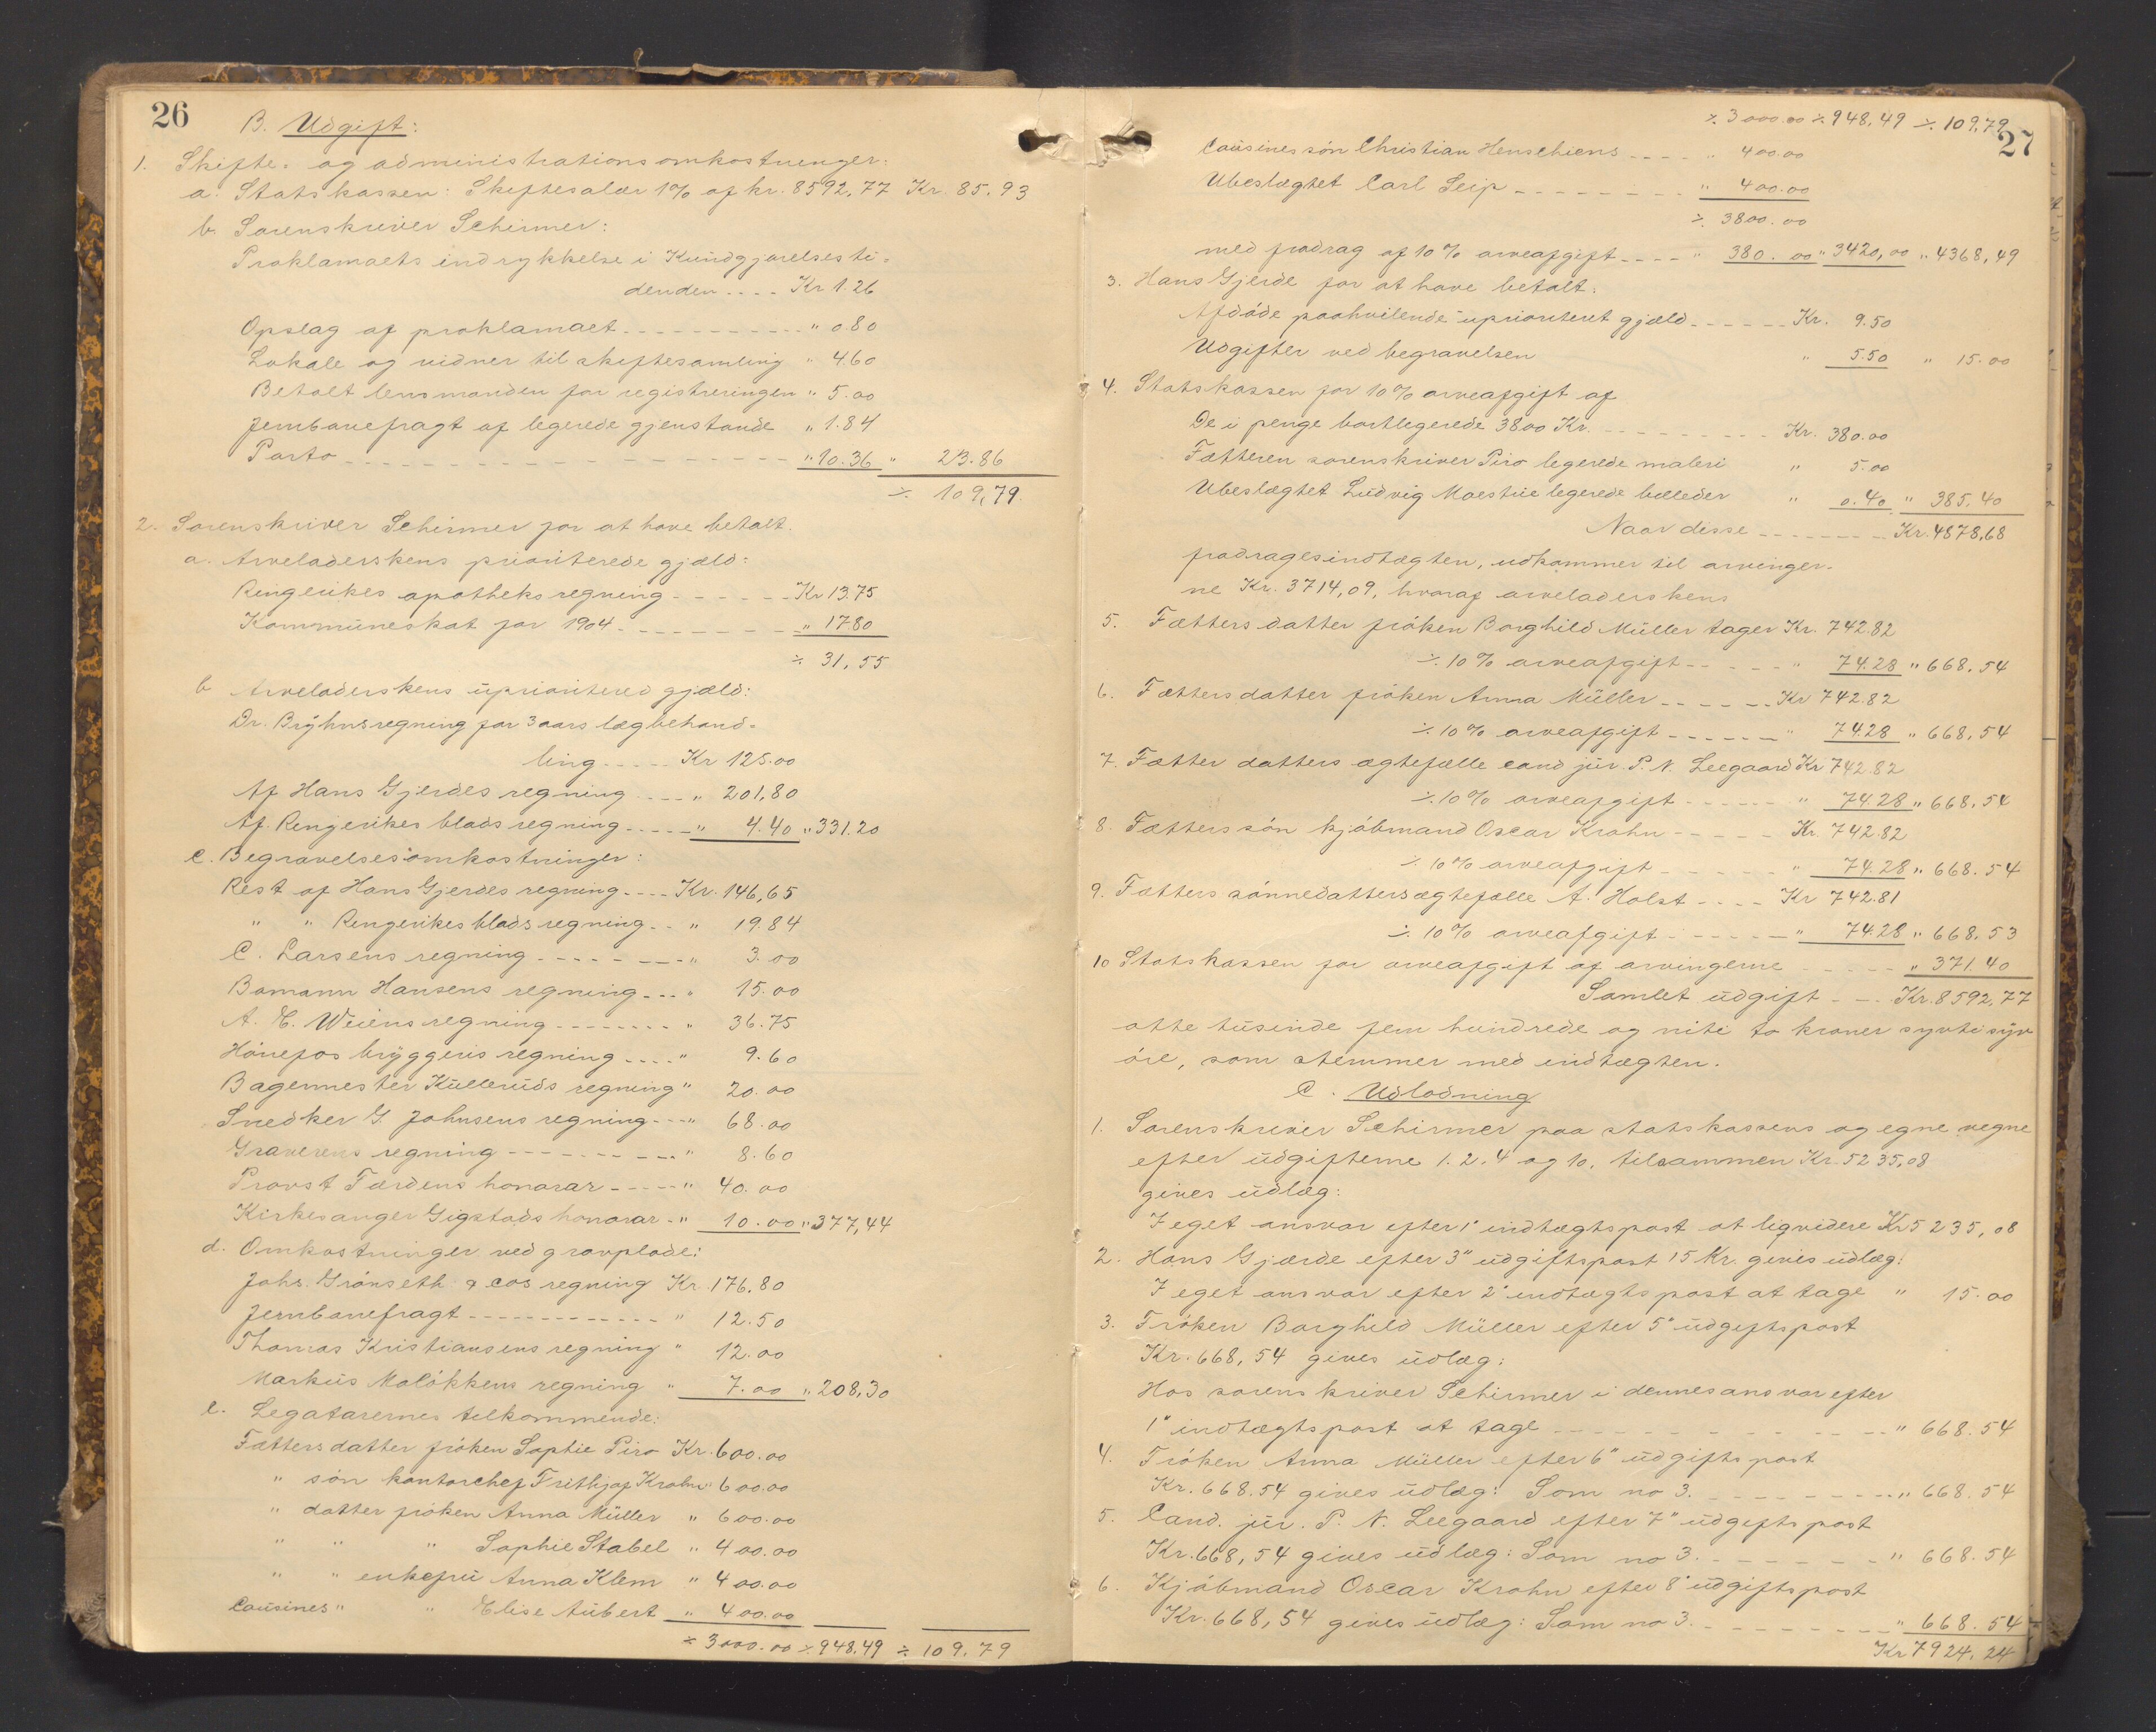 26
B. Udgift:
1. Skifte- og administrationsomkostninger:
a. Statskassen: Skiftesalær 1% af kr. 8592,77 Kr. 85.93
b. Sorenskriver Schirmer:
Proklamaets indrykkelse i Kundgjørelsesti-
denden .... Kr 1.26
Opslag af proklamaet - - - - " 0.80
Lokale og vidner til skiftesamling " 4.60
Betalt lensmanden for registreringen " 5.00
Jernbanefragt af legerede gjenstande " 1.84
Porto - - - - " 10.36 " 23.86
÷ 109,79
2. Sorenskriver Schirmer for at have betalt.
a. Arveladerskens prioriterede gjæld:
Ringerikes apotheks regning - - - - Kr 13.75
Kommuneskat for 1904 - - - - " 17.80
÷ 31,55
b Arveladerskens uprioritered gjæld:
Dr. Bryhns regning for 3 aars lægbehand-
ling - - - - Kr 125.00
Af Hans Gjerdes regning - - - - " 201,80
Af. Ringerikes blads regning - - - - " 4.40 " 331.20
c. Begravelsesomkostninger:
Rest af Hans Gjerdes regning - - - - Kr. 146,65
" " Ringerikes blads regning - - " 19.84
C. Larsens regning - - - - " 3.00
Bomann Hansens regning - - - " 15.00
A. E. Weiens regning - - - - " 36.75
Hönefos bryggeris regning - - - - " 9.60
Bagermester Kulleruds regning " 20.00
Snedker G. Johnsens regning - - - " 68.00
Graverens regning - - - - " 8.60
Provst Færdens honorar - - - - " 40.00
Kirkesanger Gigstads honorar - " 10.00 " 377,44
d. Omkostninger ved gravplade:
Johs. Grönseth & cos regning Kr. 176,80
Jernbanefragt - - - - " 12.50
Thomas Kristiansens regning " 12.00
Markus Molökkens regning " 7.00 " 208,30
e. Legatarernes tilkommende:
Fætters datter fröken Sophie Piro Kr. 600.00
" sön kontorchef Frithjof Krohn " 600.00
" datter fröken Anna Müller " 600.00
" " " Sophie Stabel " 400.00
" " enkefru Anna Klem " 400.00
Cousines " " Elise Aubert " 400.00
÷ 3000.00 ÷ 948.49 ÷ 109.79
27
÷ 3000.00 ÷ 948,49 ÷ 109,79
Cousines sön Christian Henschiens - - - - " 400.00
Ubeslægtet Carl Seip - - - - " 400.00
÷ 3800.00
med fradrag af 10% arveafgift - - - - " 380.00 " 3420,00 " 4368,49
3. Hans Gjerde for at have betalt:
Afdöde paahvilende uprioriteret gjæld - - - - Kr. 9.50
Udgifter ved begravelsen " 5.50 " 15.00
4. Statskassen for 10% arveafgift af
De i penge bortlegerede 3800 Kr. - - - - Kr. 380.00
Fætteren sorenskriver Piro legerede maleri " 5.00
Ubeslægtet Ludvig Maestue legerede billeder " 0.40 " 385.40
Naar disse - - - - Kr. 4878,68
fradrages indtægten, udkommer til arvinger-
ne Kr. 3714,09, hvoraf arveladerskens
5. Fætters datter fröken Borghild Müller tager Kr. 742.82
÷ 10% arveafgift - - - - " 74.28 " 668,54
6. Fætters datter fröken Anna Müller - - - - Kr 742.82
÷ 10% arveafgift - - - - " 74.28 " 668,54
7. Fætter datters ægtefælle cand jur. P. N. Leegaard Kr 742.82
÷ 10% arveafgift - - - - " 74.28 " 668,54
8. Fætters sön kjöbmand Oscar Krohn - - - - Kr. 742.82
÷ 10% arveafgift - - - - " 74.28 " 668.54
9. Fætters sönnedatters ægtefælle A. Holst - - - - Kr 742.81
÷ 10% arveafgift - - - - " 74.28 " 668,53
10 Statskassen for arveafgift af arvingerne - - - - " 371.40
Samlet udgift - - - Kr. 8592,77
otte tusinde fem hundrede og niti to kroner sytti syv
öre, som stemmer med indtægten.
C. Udlodning
1. Sorenskriver Schirmer paa statskassens og egne vegne
efter udgifterne 1. 2. 4 og 10. tilsammen Kr. 5235,08
gives udlæg:
I eget ansvar efter 1" indtægtspost at liqvidere Kr 5235,08
2. Hans Gjærde efter 3" udgiftspost 15 Kr. gives udlæg:
I eget ansvar efter 2" indtægtspost at tage " 15.00
3. Fröken Borghild Müller efter 5" udgiftspost
Kr. 668,54 gives udlæg:
Hos sorenskriver Schirmer i dennes ansvar efter
1" indtægtspost at tage - - - - " 668.54
4. Fröken Anna Müller efter 6" udgiftspost
Kr. 668.54 gives udlæg: Som no 3. - - - - " 668.54
5. Cand. jur. P. N. Leegaard efter 7" udgiftspost
Kr. 668,54 gives udlæg: Som no 3. - - - - " 668.54
6. Kjöbmand Oscar Krohn efter 8" udgiftspost
Kr. 668,54 gives udlæg: Som no 3. - - - - " 668.54
Kr 7924.24